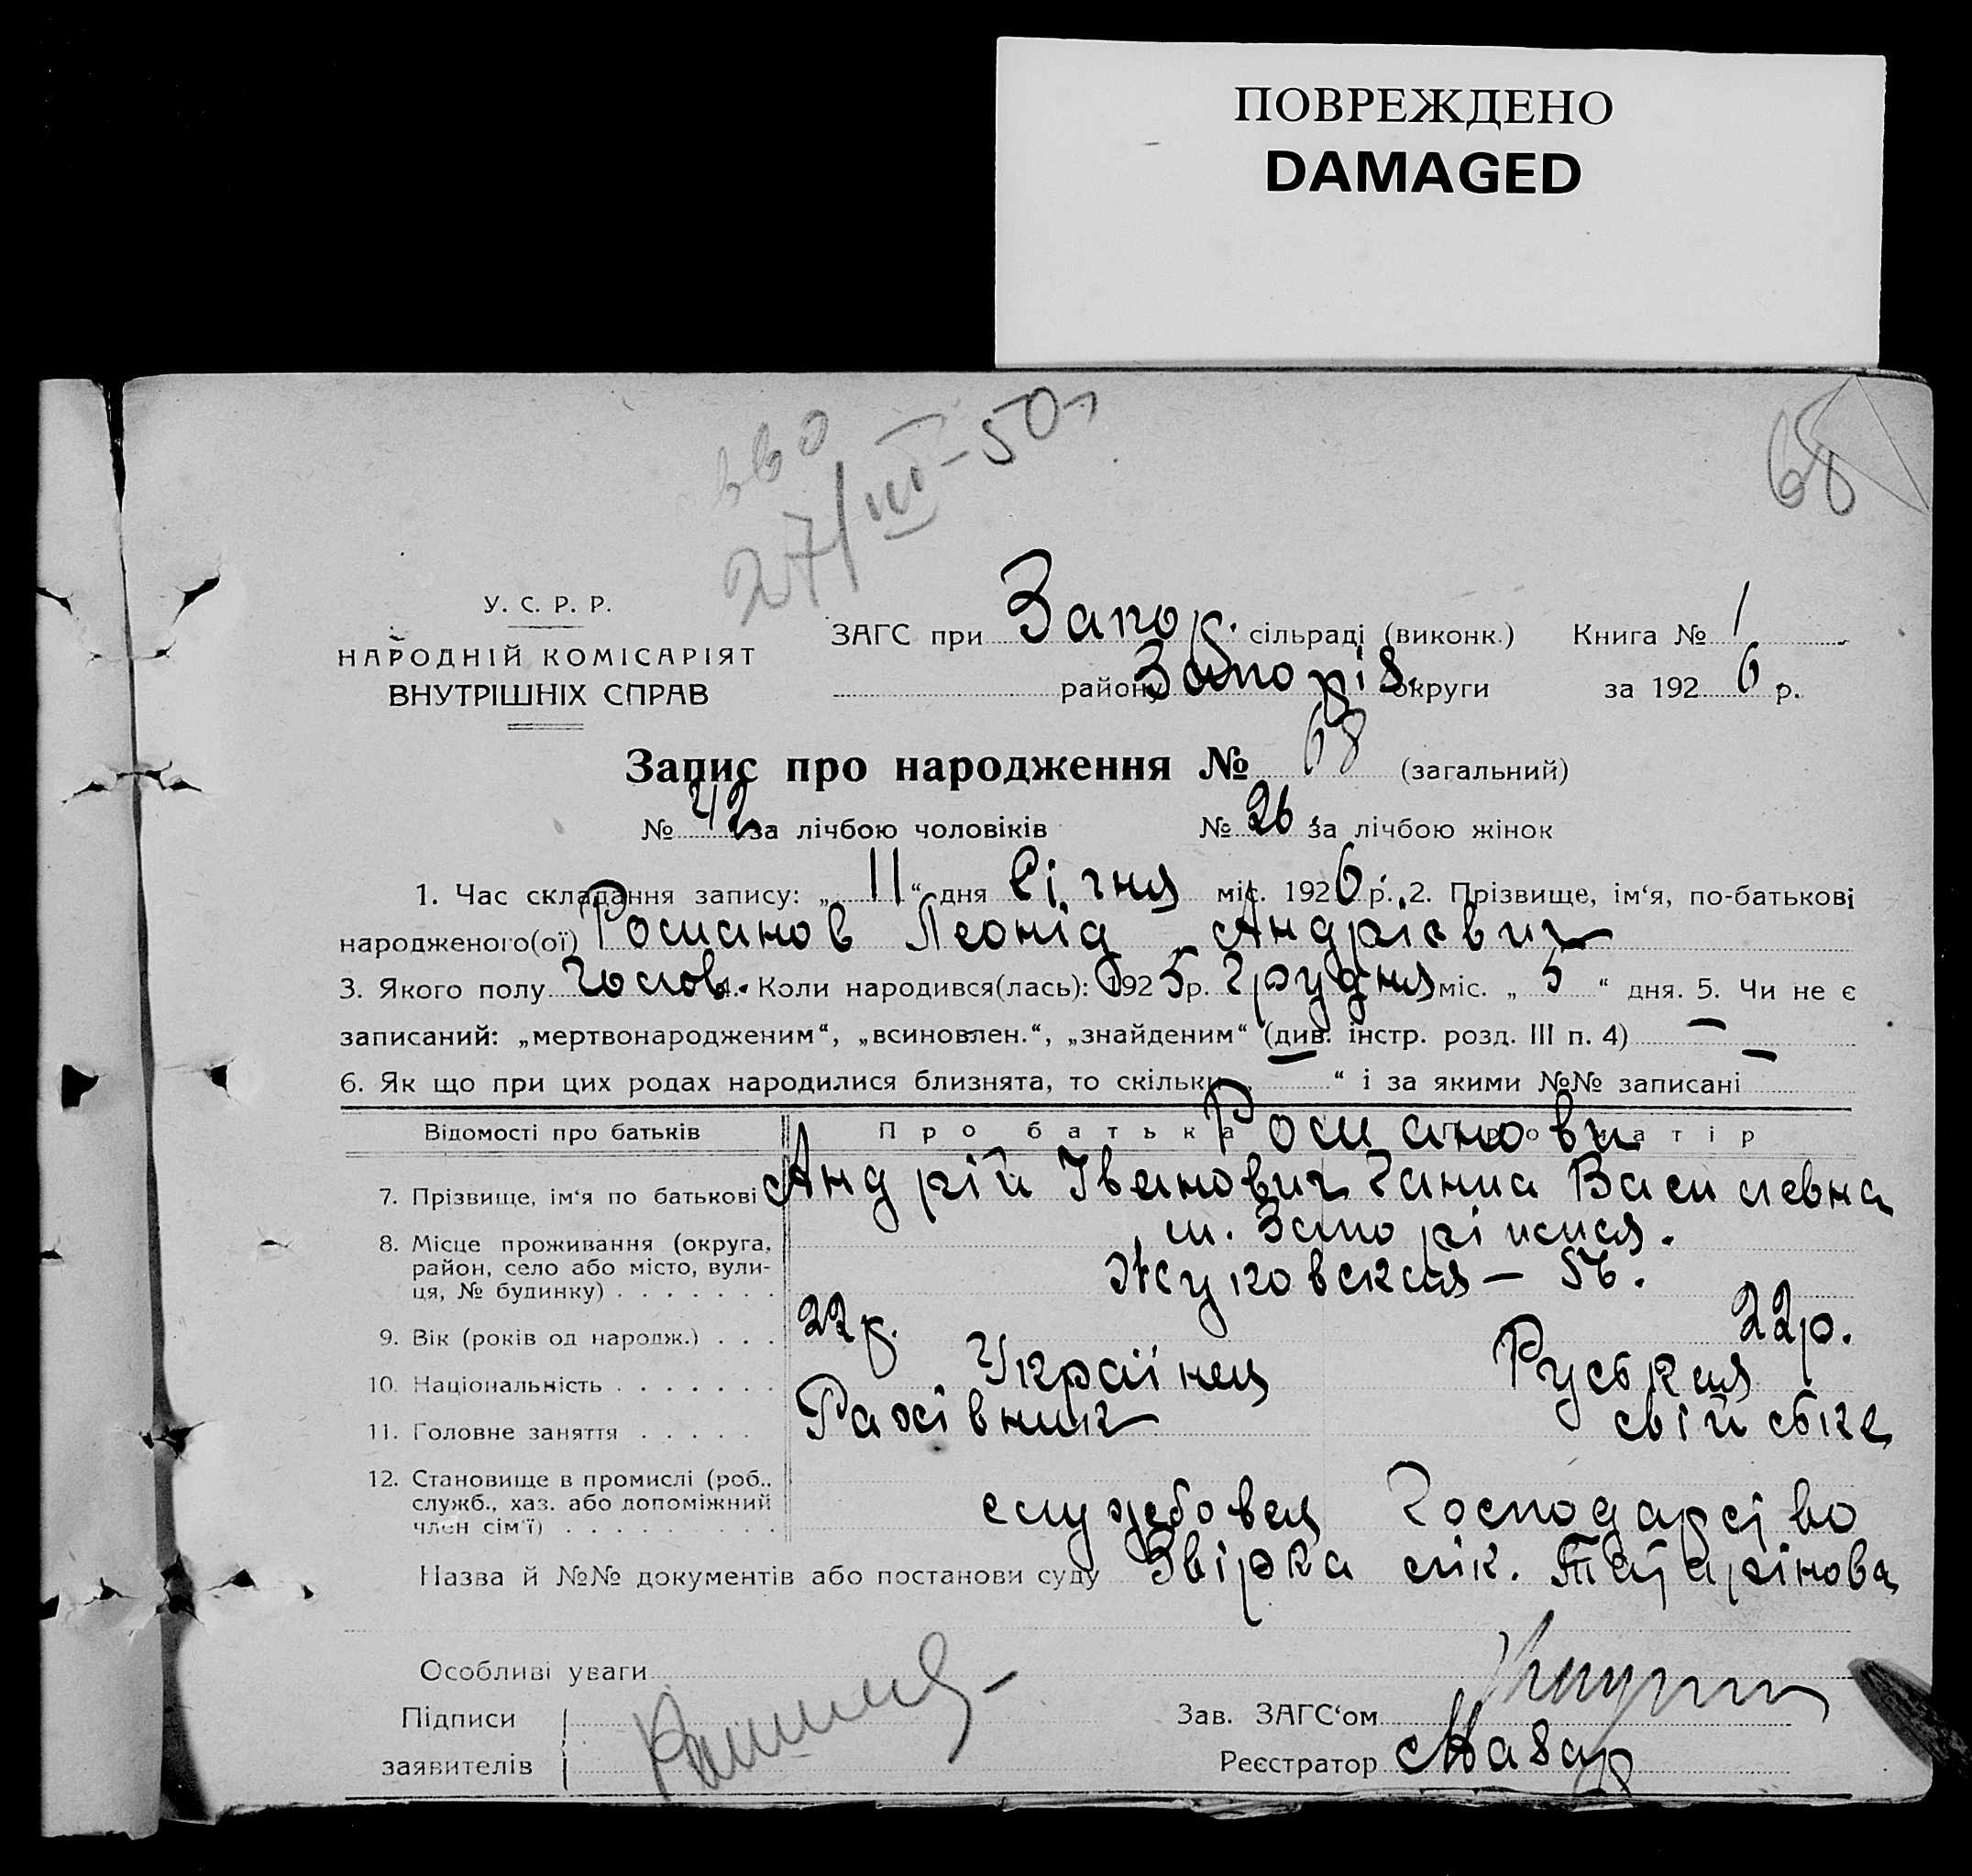 ПОВРЕЖДЕНО
DAMAGED
27/III-50г
68
У. С. Р. Р.
НАРОДНІЙ КОМІСАРІЯТ
ВНУТРІШНІХ СПРАВ
ЗАГС при Запор. сільраді (виконк.) Книга № 1
району Запоріз. округи за 1926 р.
Запис про народження № 68 (загальний)
№ 42 за лічбою чоловіків № 26 за лічбою жінок
1. Час складання запису: „11“ дня Січня міс. 1926 р. 2. Прізвище, ім‘я, по-батькові
народженого(ої) Романов Леонід Андрієвич
3. Якого полу Чолов. 4. Коли народився(лась): 1925 р. Грудня міс. „5“ дня. 5. Чи не є
записаний: „мертвонародженим“, „всиновлен.“, „знайденим“ (див. інстр. розд. III п. 4) —
6. Як що при цих родах народилися близнята, то скільки „—“ і за якими №№ записані —
Відомості про батьків Про батька Про матір
Романови
7. Прізвище, ім‘я по батькові Андрій Іванович Ганна Василевна
8. Місце проживання (округа, м. Запоріжжя.
район, село або місто, вули-
ця, № будинку) . . . . . . . Жуковская — 56.
9. Вік (років од народж.) . . . 22 р. 22 р.
10. Національність . . . . . . . Українец Руська
11. Головне заняття . . . . . Рахівник свійське
12. Становище в промислі (роб.,
служб., хаз. або допоміжний
член сім‘ї) . . . . . . . . . . службовец Господарство
Назва й №№ документів або постанови суду Звірка лік. Татарінова
Особливі уваги
Підписи
заявителів
Зав. ЗАГС‘ом
Реєстратор Мазар